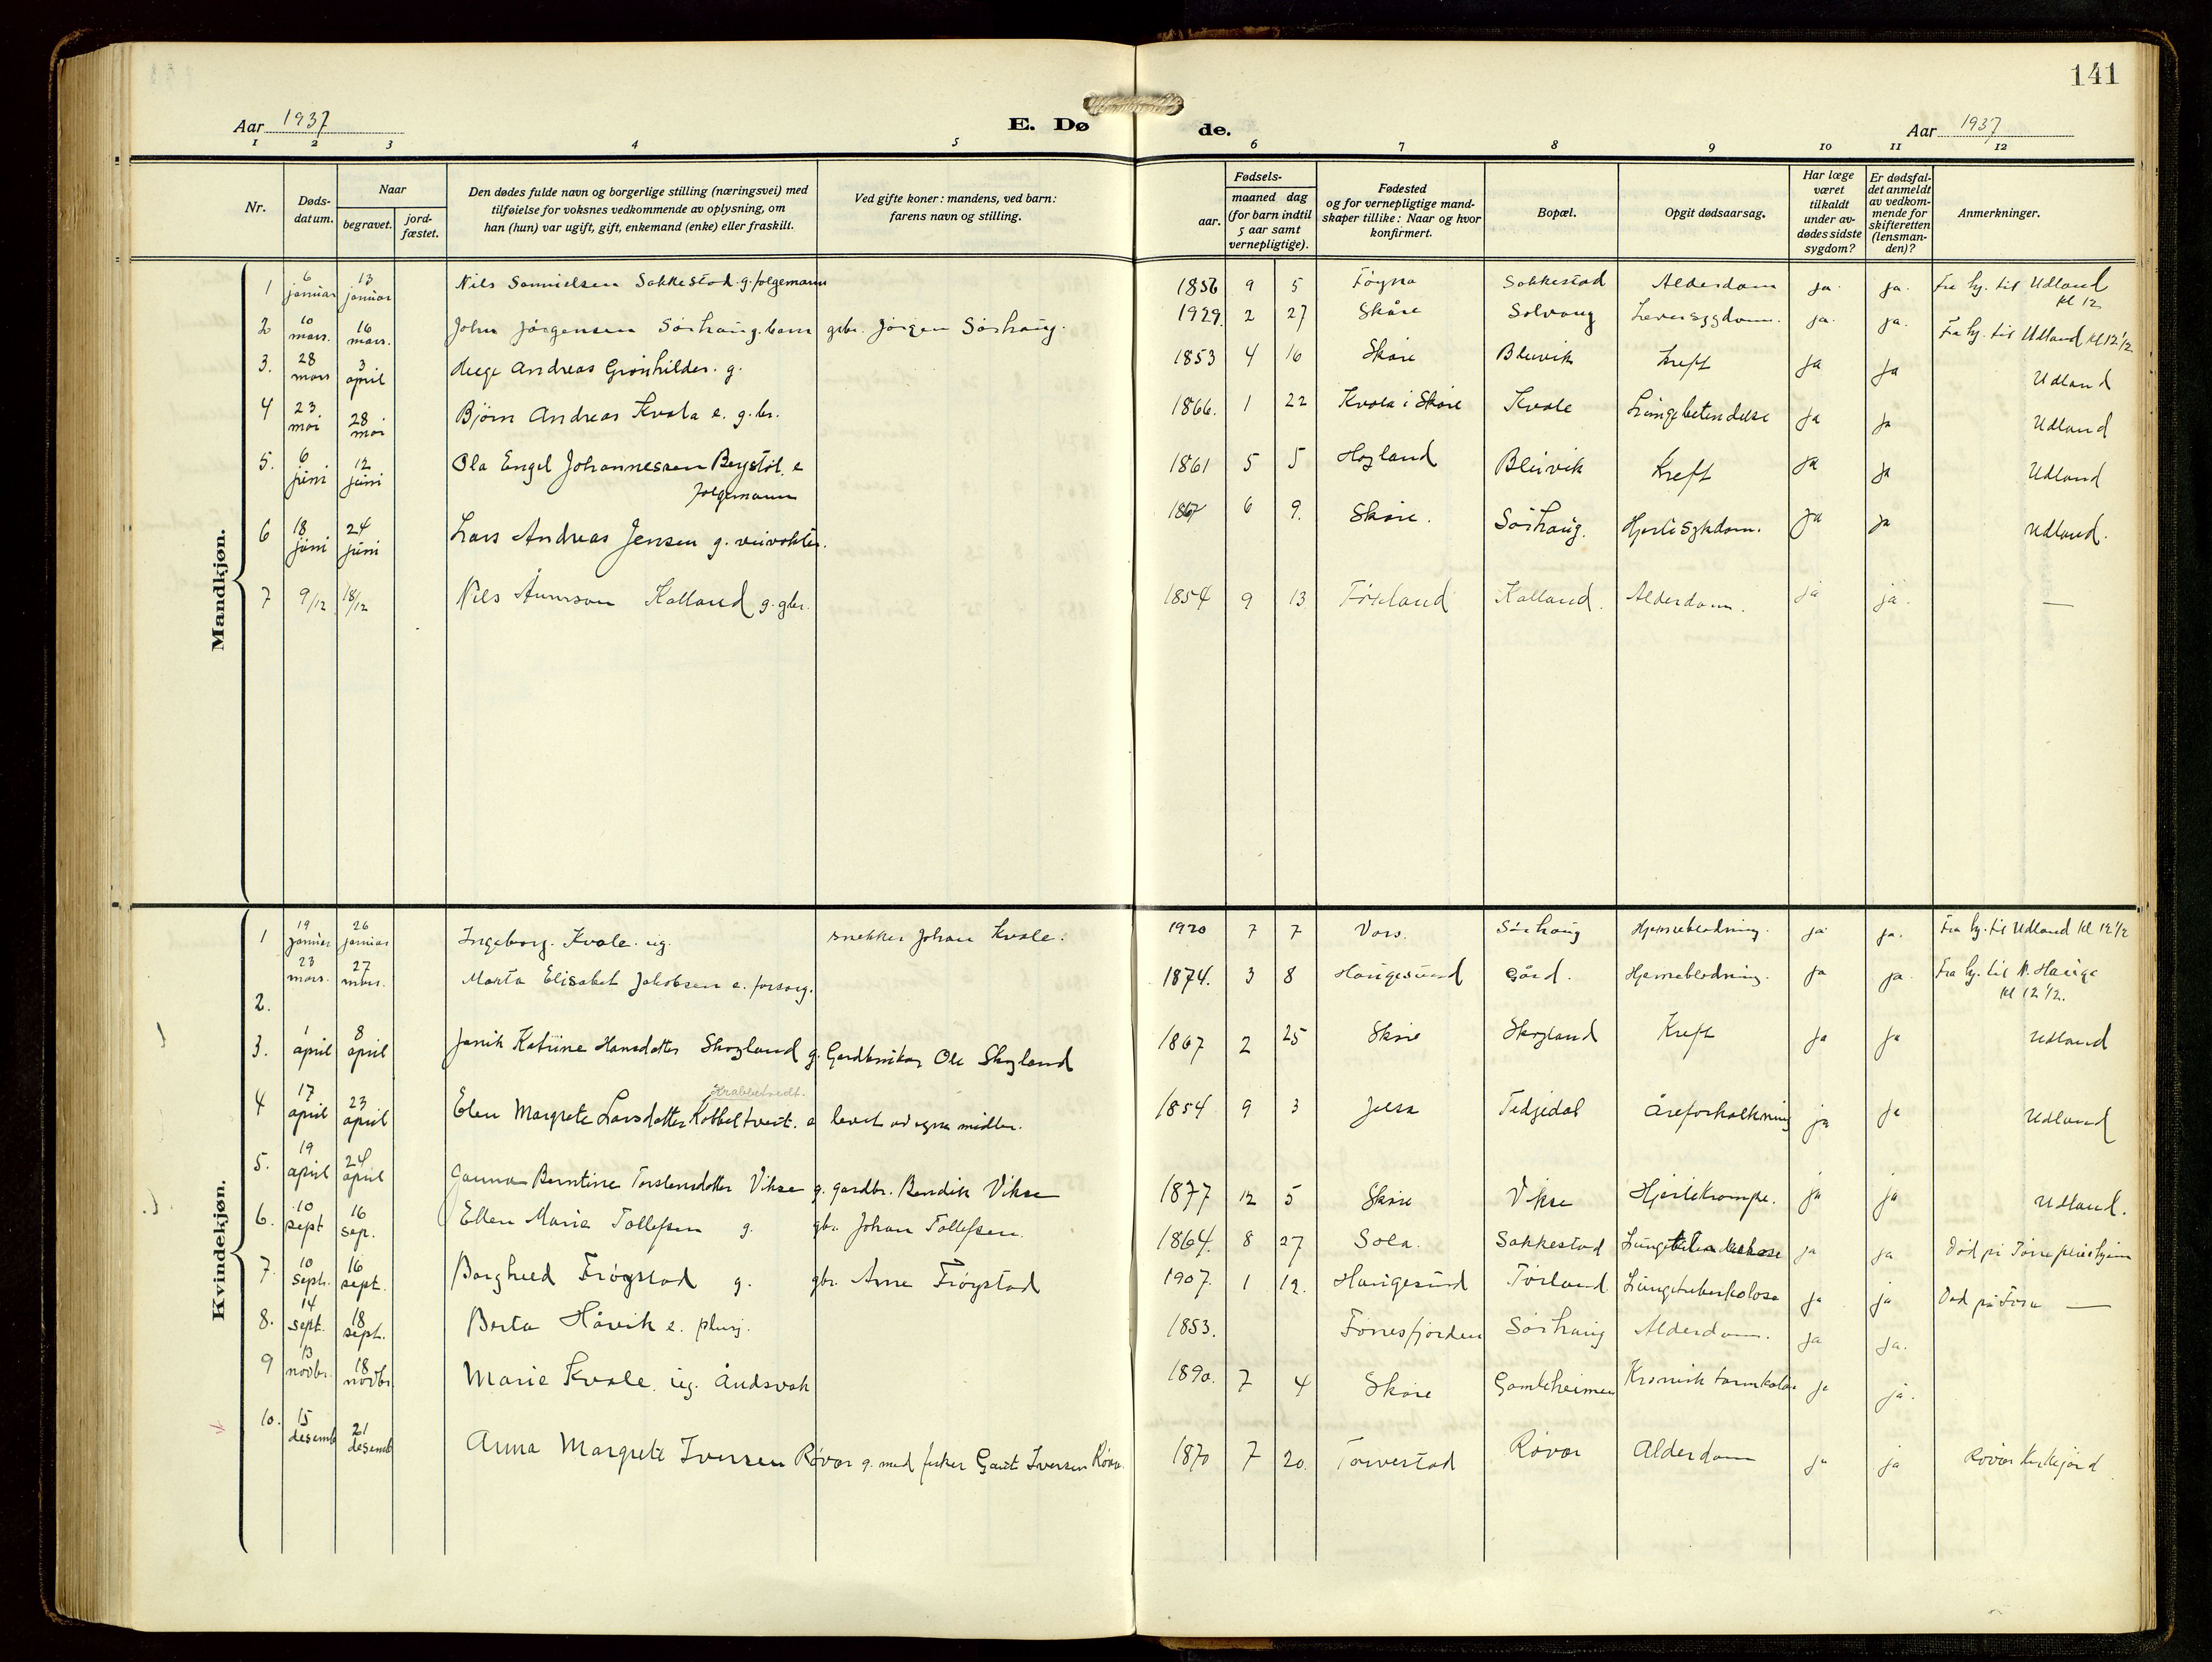 141
Aar 1937
E. Dø
de.
Aar 1937
1 2 3 4 5 6 7 8 9 10 11 12
Nr.
Døds-
datum.
Naar
begravet.
jord-
fæstet.
Den dødes fulde navn og borgerlige stilling (næringsvei) med
tilføielse for voksnes vedkommende av oplysning, om
han (hun) var ugift, gift, enkemand (enke) eller fraskilt.
Ved gifte koner: mandens, ved barn:
farens navn og stilling.
Fødsels-
aar.
maaned dag
(for barn indtil
5 aar samt
vernepligtige).
Fødested
og for vernepligtige mand-
skaper tillike: Naar og hvor
konfirmert.
Bopæl.
Opgit dødsaarsag.
Har læge
været
tilkaldt
under av-
dødes sidste
sygdom?
Er dødsfal-
det anmeldt
av vedkom-
mende for
skifteretten
(lensman-
den)?
Anmerkninger.
Mandkjøn.
1 6 januar 13 januar Nils Samuelsen Sakkestad. g. folgemann 1856 9 5 Føyna Sakkestad Alderdom ja ja. Fra hj. til Udland
kl 12
2 10 mars. 16 mars. John Jørgensen Sørhaug. barn gbr. Jørgen Sørhaug. 1929. 2 27 Skåre Solvang Leversygdom. ja. ja. Fra hj. til Udland kl 12 1/2
3. 28 mars 3 april Andreas Gronhilder. g. 1853 4 16 Skåre Bleivik Kreft ja ja Udland
4 23. mai 28 mai Bjørn Andreas Kvala e. g. br. 1866. 1 22 Kvala i Skåre Kvale Lungebetendelse ja ja Udland
5. 6 juni 12 juni Ola Engel Johannessen Beystøl. e
folgemann 1861 5 5 Hogland Bleivik Kreft ja ja Udland
6 18 juni 24 juni Lars Andreas Jensen g. veivokter. 1867 6 9. Skåre. Sørhaug. Hjertesykdom. ja ja Udland.
7 9/12 18/12 Nils Kalland g. gbr. 1854 9 13 Førland Kalland. Alderdom. ja ja. —
Kvindekjøn.
1 19 januar 26 januar Ingeborg. Kvale. ug. snekker Johan Kvale. 1920 7 7 Vars. Sørhaug Hjerneblødning. ja ja. Fra hj. til Udland kl 12 1/2
2. 23 mars. 27 mars. Marta Elisabet Jakobsen e. forsorg. 1874. 3 8 Haugesund Gård. Hjerneblødning. ja ja Fra hj. til N. Hauge
kl 12 1/2.
3. 1 april 8 april Janik Katrine Hansdatter Skogland g. Gardbruker Ole Skogland 1867 2 25 Skåre Skogland Kreft ja ja Udland
Krabbetvedt.
4 17 april 23 april Elen Margrete Larsdatter Kobbeltveit. e levet av egne midler. 1854 9 3 Jelsa Tedjedal Åreforkalkning ja ja Udland
5. 19 april 24 april Gunna Berntine Torstensdatter Vikse g. gardbr. Bendik Vikse 1877 12 5 Skåre Vikse Hjertekrampe. ja ja Udland.
6. 10 sept 16 sep. Ellen Marie Tollefsen g. gbr. Johan Tollefsen. 1864. 8 27 Sola. Sakkestad ja ja
7. 10 sept. 16 sept. Borghild Frøystad g. gbr. Arne Frøystad 1907. 1 12. Haugesund Førland Lungetuberkolose ja ja Død på —
8. 14 sept. 18 sept. Berta Håvik e. 1853. Førresfjorden Sørhaug Alderdom. ja ja.
9 13 novbr. 18 novbr. Marie Kvale. ug. Åndsvak 1890. 7 4 Skåre Gamleheimen Kronisk ja ja.
10. 15 desemb 21 desemb Anna Margrete Iversen Røvær g. med fisker Gaut Iversen Røvær 1870 7 20. Torvestad Røvær Alderdom ja ja Røvær kirkejord